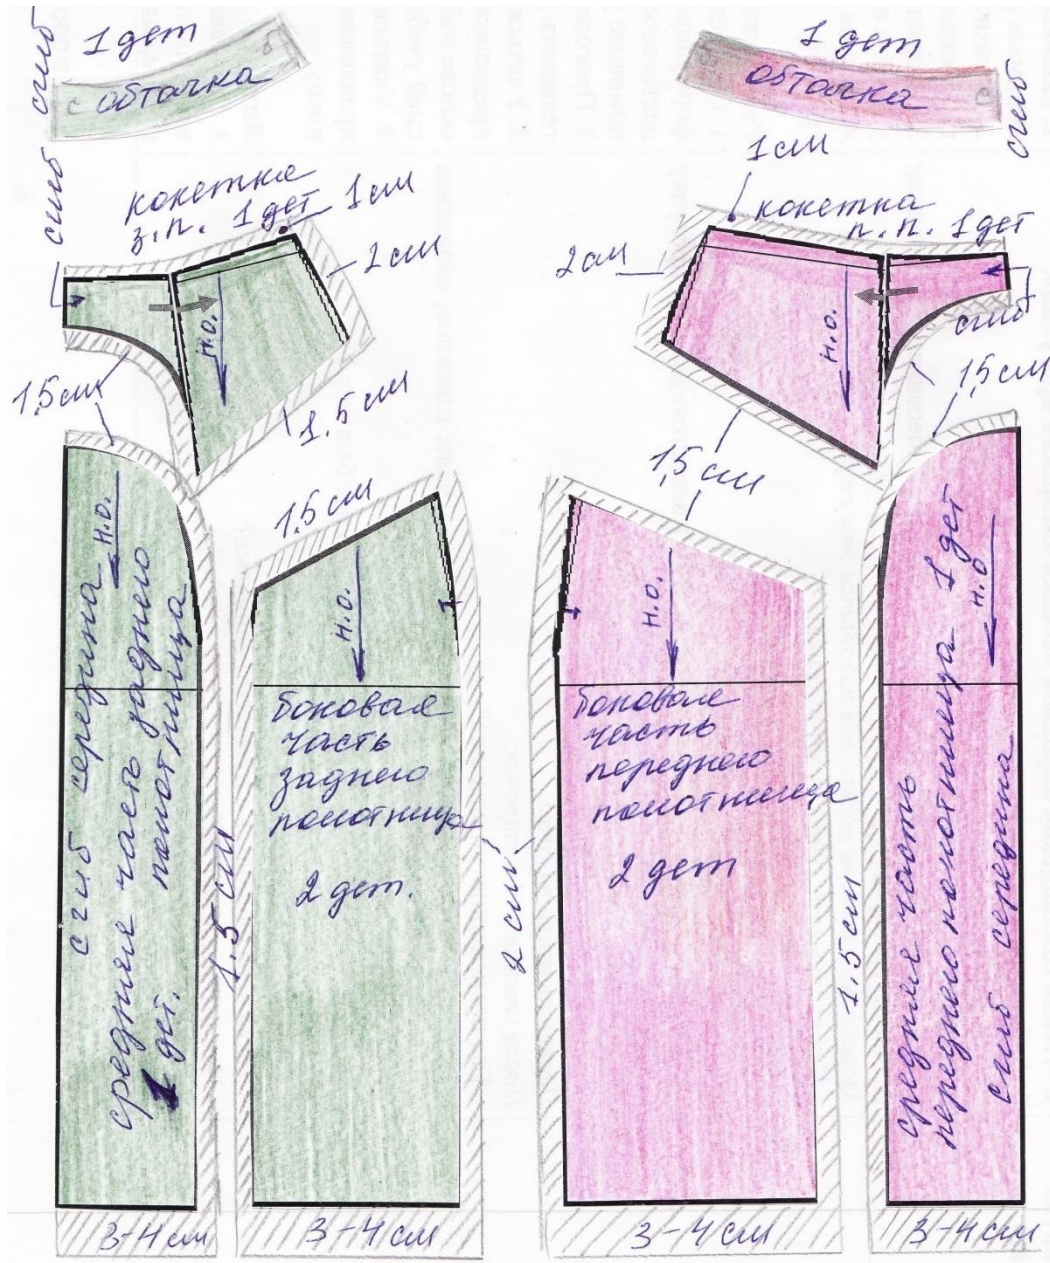 сгиб
1 дет
обтачка
1 дет
обтачка
сгиб
сгиб
кокетка
з.п. 1 дет
1 см
2 см
н.о.
1,5 см
1.5 см
1 см
кокетка
п.п. 1 дет
2 см
н.о.
сгиб
1,5 см
1,5 см
1,5 см
н.о.
сгиб середина
средняя часть заднего
полотнища
1 дет.
1.5 см
н.о.
боковая
часть
заднего
полотнища
2 дет.
2 см
н.о.
боковая
часть
переднего
полотнища
2 дет
1.5 см
н.о
средняя часть
переднего полотнища 1 дет
сгиб середина
3-4 см
3-4 см
3-4 см
3-4 см